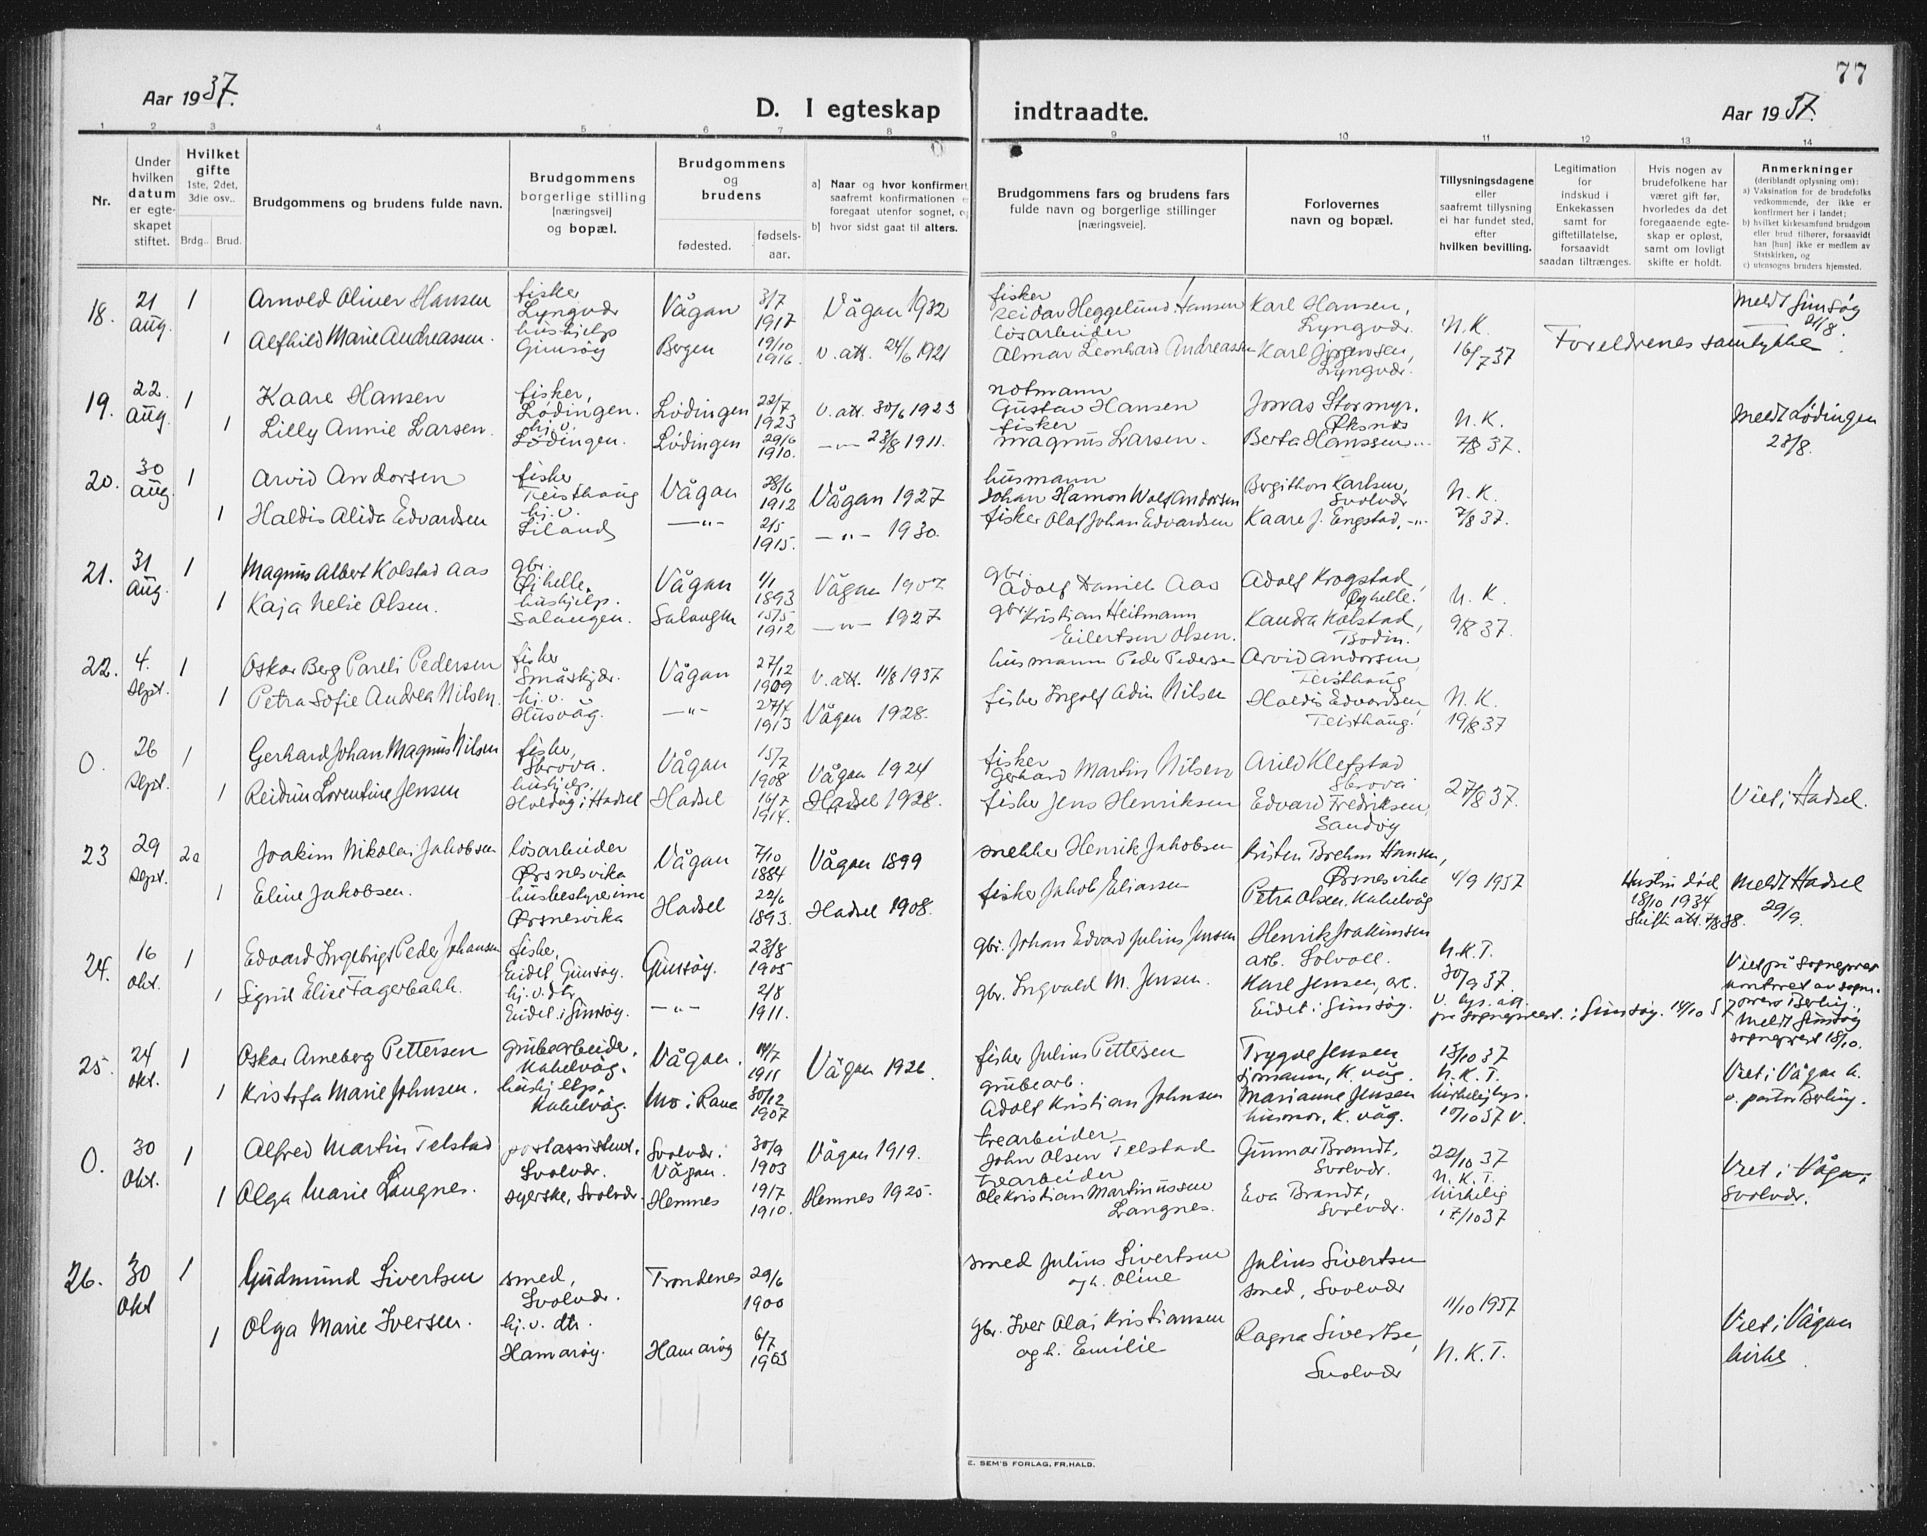 77
Aar 1937.
D. I egteskap indtraadte.
Aar 1937.
1 2 3 4 5 6 7 8 9 10 11 12 13 14
Nr.
Under hvilken datum er egteskapet stiftet.
Hvilket gifte
1ste, 2det, 3die osv..
Brdg. Brud.
Brudgommens og brudens fulde navn.
Brudgommens borgerlige stilling [næringsvei] og bopæl.
Brudgommens og brudens
fødested.
fødselsaar.
a) Naar og hvor konfirmert,
saafremt konfirmationen er
foregaat utenfor sognet, og
b) hvor sidst gaat til alters.
Brudgommens fars og brudens fars
fulde navn og borgerlige stillinger
[næringsveie].
Forlovernes
navn og bopæl.
Tillysningsdagene
eller
saafremt tillysning
ei har fundet sted,
efter
hvilken bevilling.
Legitimation
for
indskud i
Enkekassen
samt for
giftetillatelse,
forsaavidt
saadan tiltrænges.
Hvis nogen av
brudefolkene har
været gift før,
hvorledes da det
foregaaende egteskap er opløst,
samt om lovligt
skifte er holdt.
Anmerkninger
(deriblandt oplysning om):
a) Vaksination for de brudefolks
vedkommende, der ikke er
konfirmert her i landet;
b) hvilket kirkesamfund brudgom
eller brud tilhører, forsaavidt
han [hun] ikke er medlem av
Statskirken, og
c) utensogns bruders hjemsted.
18. 21 aug. 1 Arnold Oliver Hansen fisker Lyngvær Vågan 3/7 1917 Vågan 1932 fisker Reidar Heggelund Hansen Karl Hansen, Lyngvær. N.K. 16/7 37 Foreldrenes samtykke. Meldt Gimsøy 21/8.
1 Alfhild Marie Andreassen. hushjelp Gimsøy Bergen 19/10 1916. v. att. 24/6 1921 løsarbeider Almar Leonhard Andreassen Karl Jørgensen, Lyngvær.
19. 22. aug. 1 Kaare Hansen fisker, Lødingen. Lødingen 22/7 1923 v. att. 30/6 1923 notmann Gustav Hansen Jonas Stormyr. Øksnes N.K. 7/8 37. Meldt Lødingen 23/8.
1 Lilly Annie Larsen. hj.v. Lødingen. Lødingen 29/6 1910. —"— 23/8 1911. fisker Magnus Larsen. Berta Hanssen —"—
20. 30 aug. 1 Arvid Andorsen fisker Teisthaug Vågan 28/6 1912 Vågan 1927 husmann Johan Hamon Wolf Andorsen Bergithon Karlsen, Svolvær N.K. 7/8 37.
1 Haldis Alida Edvardsen hj.v. Liland —"— 2/5 1915. —"— 1930. fisker Olaf Johan Edvardsen Kaare J. Engstad, —"—
21. 31 aug. 1 Magnus Albert Kolstad Aas gbr. Øihelle. Vågan 1/1 1893 Vågan 1907 gbr. Adolf Daniel Aas Adolf Krogstad, Øyhelle. N.K. 9/8 37.
1 Kaja Nelie Olsen. hushjelp. Salangen. Salangen 15/5 1912 —"— 1927 gbr. Kristian Heitmann Eilertsen Olsen. Kandra Kolstad, Bodin.
22. 4. sept. 1 Oskar Berg Pareli Pedersen fisker Småskjær. Vågan 27/12 1909 v. att. 11/8 1937 husmann Peder Pedersen Arvid Andorsen, Teisthaug N.K. 19/8 37
1 Petra Sofie Andrea Nilsen. hj.v. Husvåg. —"— 27/4 1913 Vågan 1928. fisker Ingolf Adin Nilsen Haldis Edvardsen, Teisthaug.
0. 26 sept. 1 Gerhard Johan Magnus Nilsen fisker, Skrova. Vågan 15/7 1908 Vågan 1924 fisker Gerhard Martin Nilsen Arild Klefstad Skrova 27/8 37. Viet i Hadsel.
1 Reidun Lorentine Jensen hushjelp. Holdøy i Hadsel Hadsel 16/7 1914. Hadsel 1928. fisker Jens Henriksen Edvard Fredriksen, Sandøy
23 29 sept. 2a Joakim Nikolai Jakobsen løsarbeider Ørsnesvika Vågan 7/10 1884 Vågan 1899 snekker Henrik Jakobsen Kristen Brehm Hansen, Ørsnesvika 4/9 1937 Hustru död 18/10 1934 Skifte att. 4/8 38. Meldt Hadsel 29/9.
1 Eline Jakobsen. husbestyrerinne Ørsnesvika Hadsel 22/6 1893. Hadsel 1908. fisker Jakob Eliassen Petra Olsen. Kabelvåg
24. 16 okt. 1 Edvard Ingebrigt Peder Johansen fisker, Eidet Gimsøy. Gimsøy. 23/8 1905 gbr. Johan Edvard Julius Jensen Henrik Joakimsen arb. Solvoll. N.K.T. 30/9 37. Viet på sogneprest kontoret av sogne.
1 Sigrid Elise Fagerbakk. hj.v. dtr. Eidet i Gimsøy. —"— 2/8 1911. gbr. Ingvald M. Jensen. Karl Jensen, Eidet i Gimsøy. v. lys. att. fra sogneprest. i Gimsøy. 14/10 37 Meldt Gimsøy sogneprest 18/10.
25. 24 okt. 1 Oskar Arneberg Pettersen grubearbeider, Kabelvåg. Vågan. 14/7 1911 Vågan 1926. fisker Julius Pettersen Trygve Jensen sjømann, K. våg. 13/10 37 N.K.T. Viet i Vågan k. v. pastor Berling.
1 Kristofa Marie Johnsen. hushjelp. Kabelvåg. Mo i Rana 30/12 1907 grubearb. Adolf Kristian Johnsen Marianne Jensen husmor, K. våg. kirkelig lys. 10/10 37 v.
0. 30 okt. 1 Alfred Martin Telstad postassistent, Svolvær. Svolvær i Vågan. 30/9 1903 Vågan 1919. trearbeider John Olsen Telstad Gunnar Brandt, Svolvær. 22/10 37 N.K.T. Viet i Vågan, Svolvær.
1 Olga Marie Langnes. syerske, Svolvær. Hemnes 19/7 1910. Hemnes 1925. trearbeider Ole Kristian Martinussen Langnes. Eva Brandt, Svolvær. kirkelig 17/10 37
26. 30 okt 1 Gudmund Sivertsen smed, Svolvær. Trondenes 29/6 1900 smed Julius Sivertsen og h. Oline Julius Sivertsen smed, Svolvær 11/10 1937 N.K.T. Viet i Vågan kirke
1 Olga Marie Iversen. hj.v. dtr. Hamarøy. Hamarøy 6/7 1903 gbr. Iver Olai Kristiansen og h. Emilie Ragna Sivertsen, Svolvær
E. SEM'S FORLAG, FR.HALD.